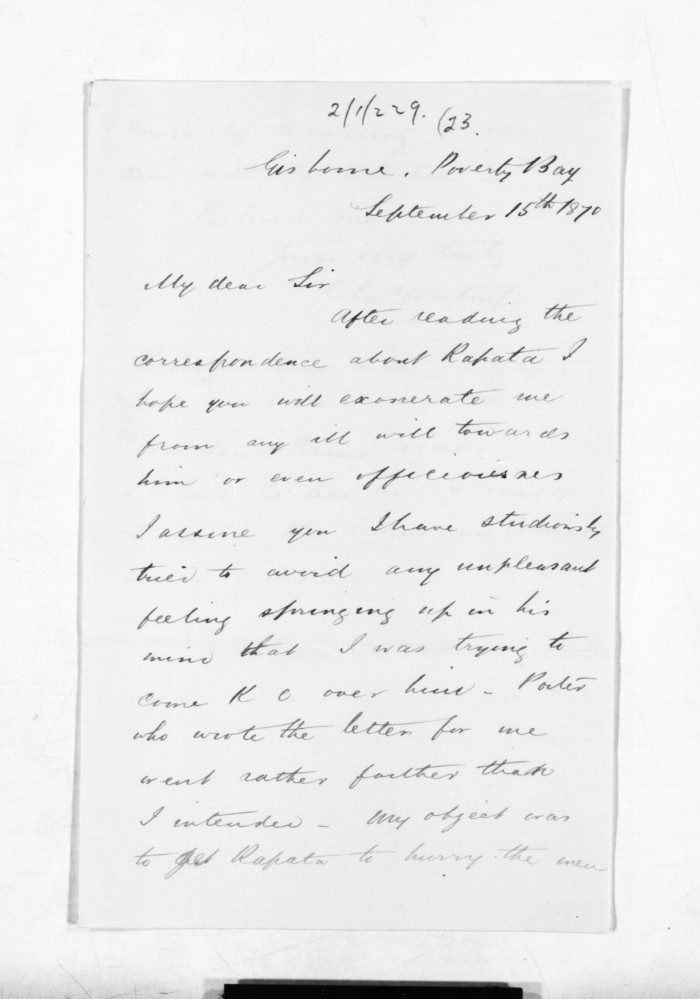 2/1/229. (23.
Gisborne. Poverty Bay
September 15th 1870
My dear Sir
After reading the
correspondence about Rapata I
hope you will exonerate me
from any ill will towards
him or even officiousness
I assure you I have studiously
tried to avoid any unpleasant
feeling springing up in his
mind that I was trying to
come K C over him - Porter
who wrote the letter for me
went rather farther than
I intended - My object was
to get Rapata to hurry the men